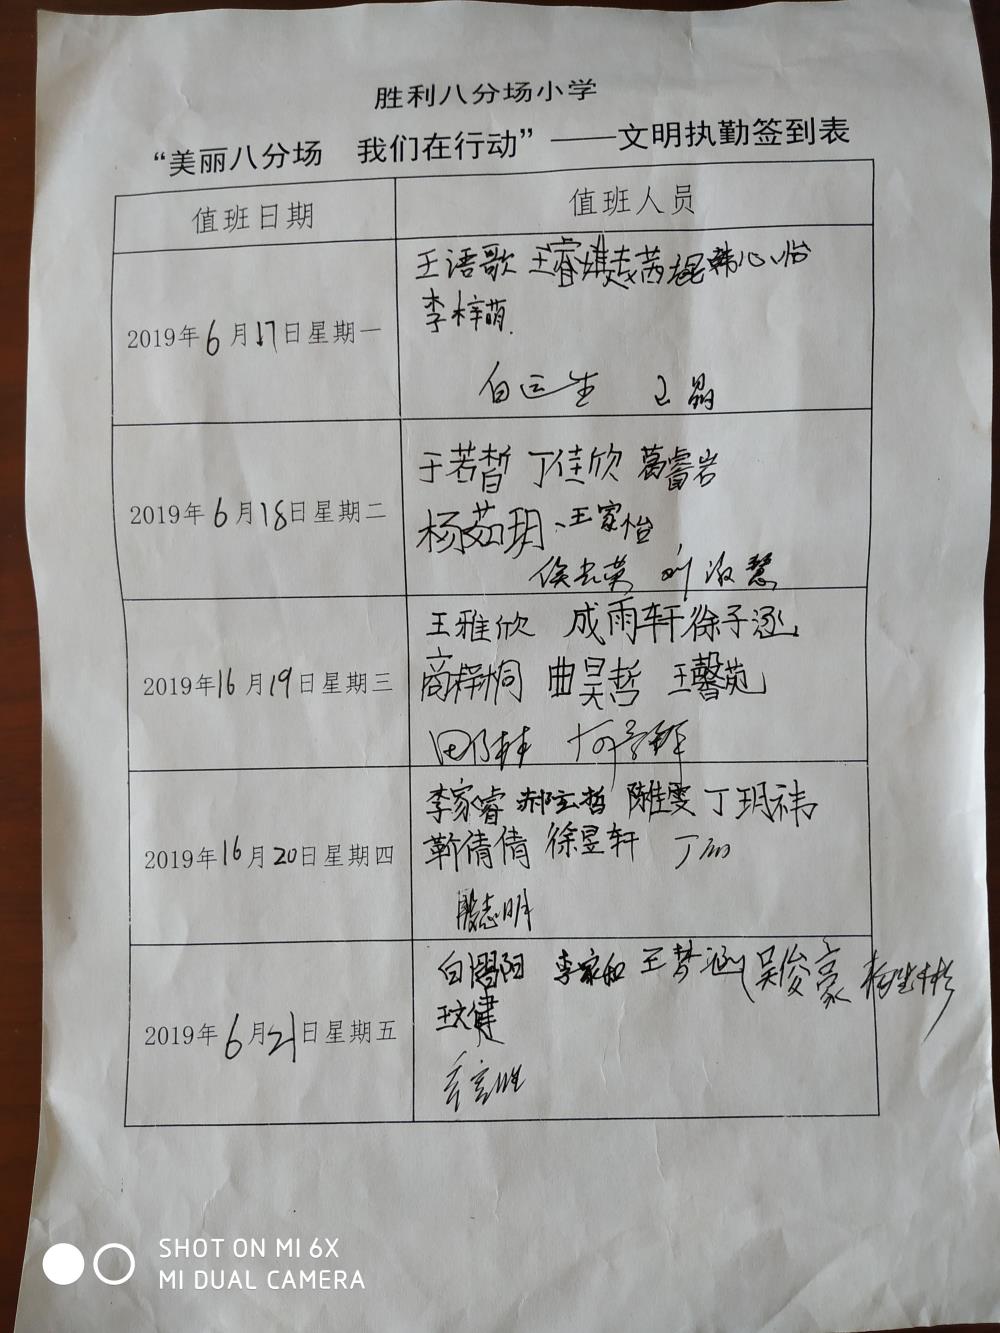 胜利八分场小学
“美丽八分场 我们在行动”——文明执勤签到表
值班日期 值班人员
王语歌 王睿 韩心怡
李梓萌
2019年6月17日星期一
白运生 王晶
于若晳 丁佳欣 葛睿岩
2019年6月18日星期二
杨茹玥 王家怡
刘淑慧
王雅欣 成雨轩 徐子涵
2019年16月19日星期三
商梓桐 曲昊哲 王馨苑
李家睿 郝玄哲 陈佳雯 丁玥祎
2019年16月20日星期四
靳倩倩 徐昱轩 丁
殷志明
白熠阳 李家和 王梦涵 吴俊豪
王文健
2019年6月21日星期五
SHOT ON MI 6X
MI DUAL CAMERA